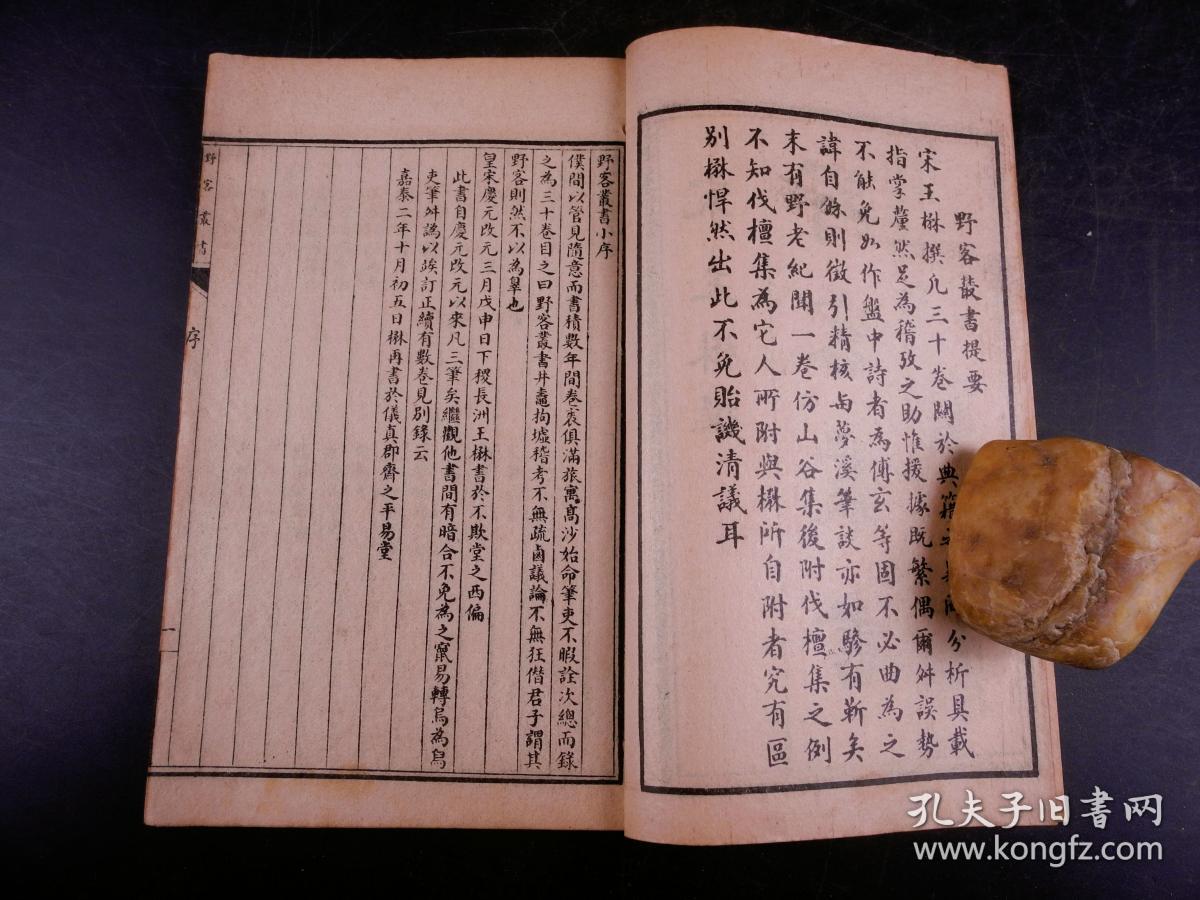 野客叢書提要
宋王楙撰凡三十卷關於典籍之異同分析具載
指掌釐然足為稽攷之助惟援據既繁偶爾舛誤勢
不能免如作盤中詩者為傅玄等固不必曲為之
諱自餘則徵引精核與夢溪筆談亦如驂有靳矣
末有野老紀聞一卷仿山谷集後附伐檀集之例
不知伐檀集為它人所附與楙所自附者究有區
別楙悍然出此不免貽譏清議耳
野客叢書小序
僕間以管見隨意而書積數年間卷袠俱滿旅寓高沙始命筆吏不暇詮次總而錄
之為三十卷目之曰野客叢書井鼃拘墟稽考不無疏鹵議論不無狂僭君子謂其
野客則然不以為辠也
皇宋慶元改元三月戊申日下稷長洲王楙書於不欺堂之西偏
此書自慶元改元以來凡三筆矣繼觀他書間有暗合不免為之竄易轉烏為舄
吏筆舛譌以竢訂正續有數卷見別錄云
嘉泰二年十月初五日楙再書於儀真郡齋之平易堂
野客叢書
序
一
孔夫子旧書网
www.kongfz.com